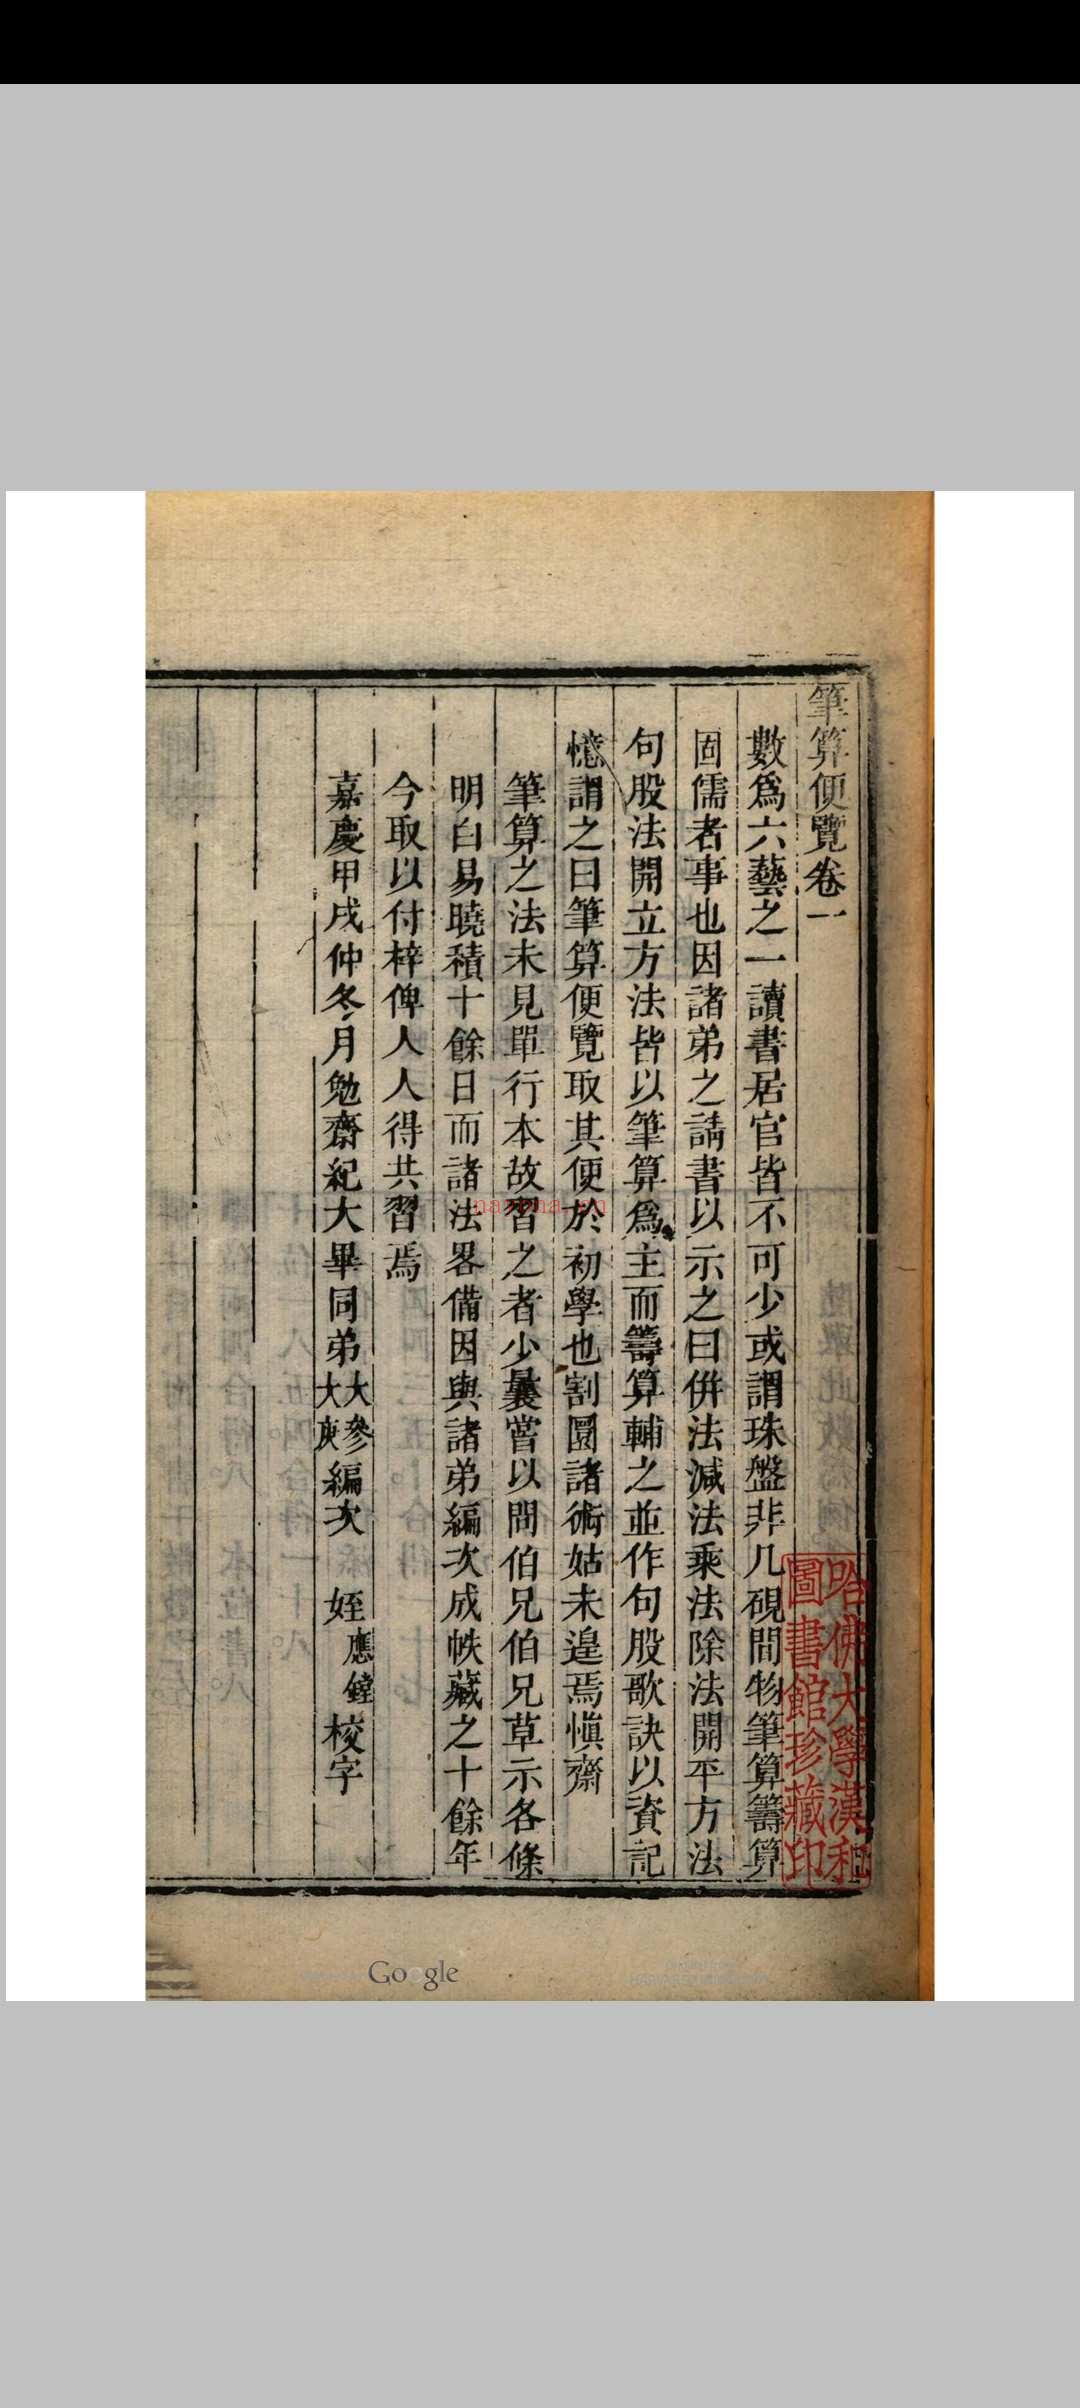 筆算便覽卷一
數爲六藝之一讀書居官皆不可少或謂珠盤非几硯間物筆算籌算
固儒者事也因諸弟之請書以示之曰併法減法乘法除法開平方法
句股法開立方法皆以筆算爲主而籌算輔之並作句股歌訣以資記
憶謂之曰筆算便覽取其便於初學也割圜諸術姑未遑焉愼齋
筆算之法未見單行本故習之者少曩嘗以問伯兄伯兄草示各條
明白易曉積十餘日而諸法畧備因與諸弟編次成帙藏之十餘年
今取以付梓俾人人得共習焉
嘉慶甲戌仲冬月勉齋紀大畢同弟大參大庾編次 姪應鐘校字
哈佛大學漢和
圖書館珍藏印
Google